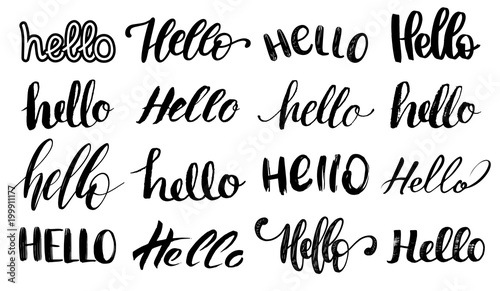 hello Hello HELLO Hello
hello Hello hello hello
hello hello HEllO Hello
HELLO Hello Hello Hello
Adobe Stock | #199911177